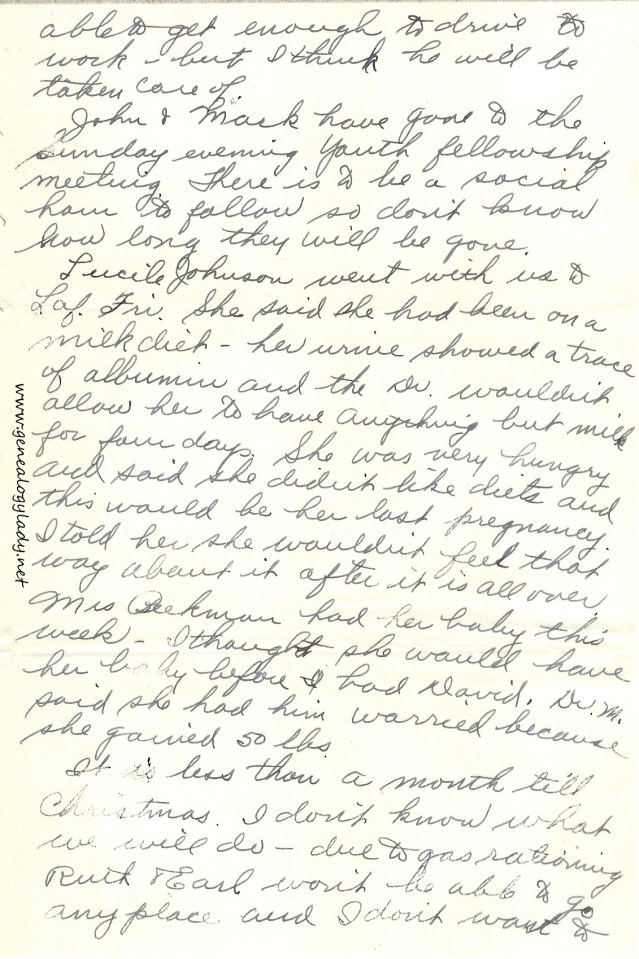 able to get enough to drive to
work - but I think he will be
taken care of.
John & Mark have gone to the
Sunday evening Youth fellowship
meeting. There is to be a social
hour to follow so don't know
how long they will be gone.
Lucile Johnson went with us to
Laf. Fri. She said she had been on a
milk diet - her urine showed a trace
of albumin and the Dr. wouldn't
allow her to have anything but milk
for four days. She was very hungry
and said she didn't like diets and
this would be her last pregnancy.
I told her she wouldn't feel that
way about it after it is all over.
Mrs Beekman had her baby this
week - I thought she would have
her baby before I had David. Dr. M.
said she had him worried because
she gained 50 lbs
It is less than a month till
Christmas. I don't know what
we will do - due to gas rationing
Ruth & Earl won't be able to go
any place and I don't want to
www.genealogylady.net